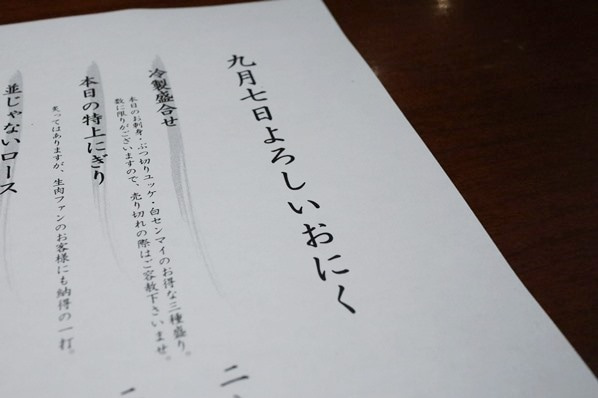 九月七日よろしいおにく
冷製盛合せ
本日のお刺身・ぶつ切りユッケ・白センマイのお得な三種盛り。
数に限りがございますので、売り切れの際はご容赦下さいませ。
二
本日の特上にぎり
炙ってはありますが、生肉ファンのお客様にも納得の一打。
並じゃないロース